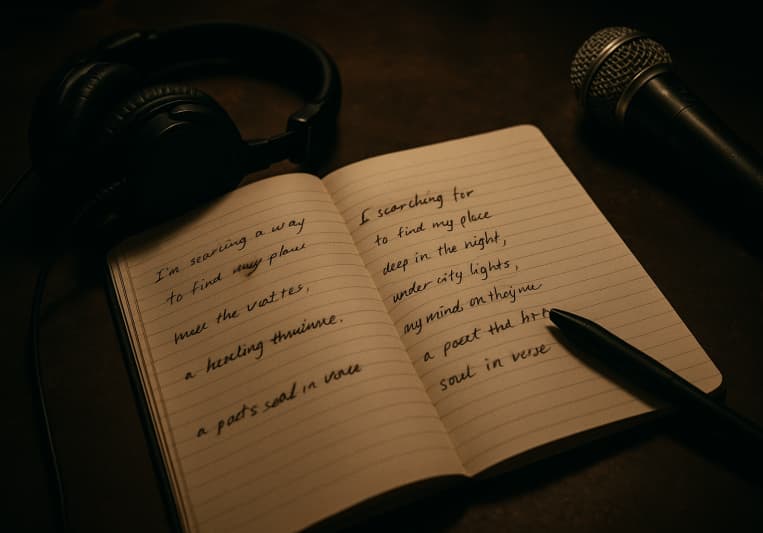 I'm searcing a way
to find my place
meet the
a
a poets soal in voice
I scarching for
to find my place
deep in the night,
under city lights,
my minds on
a poet the
soul in verse